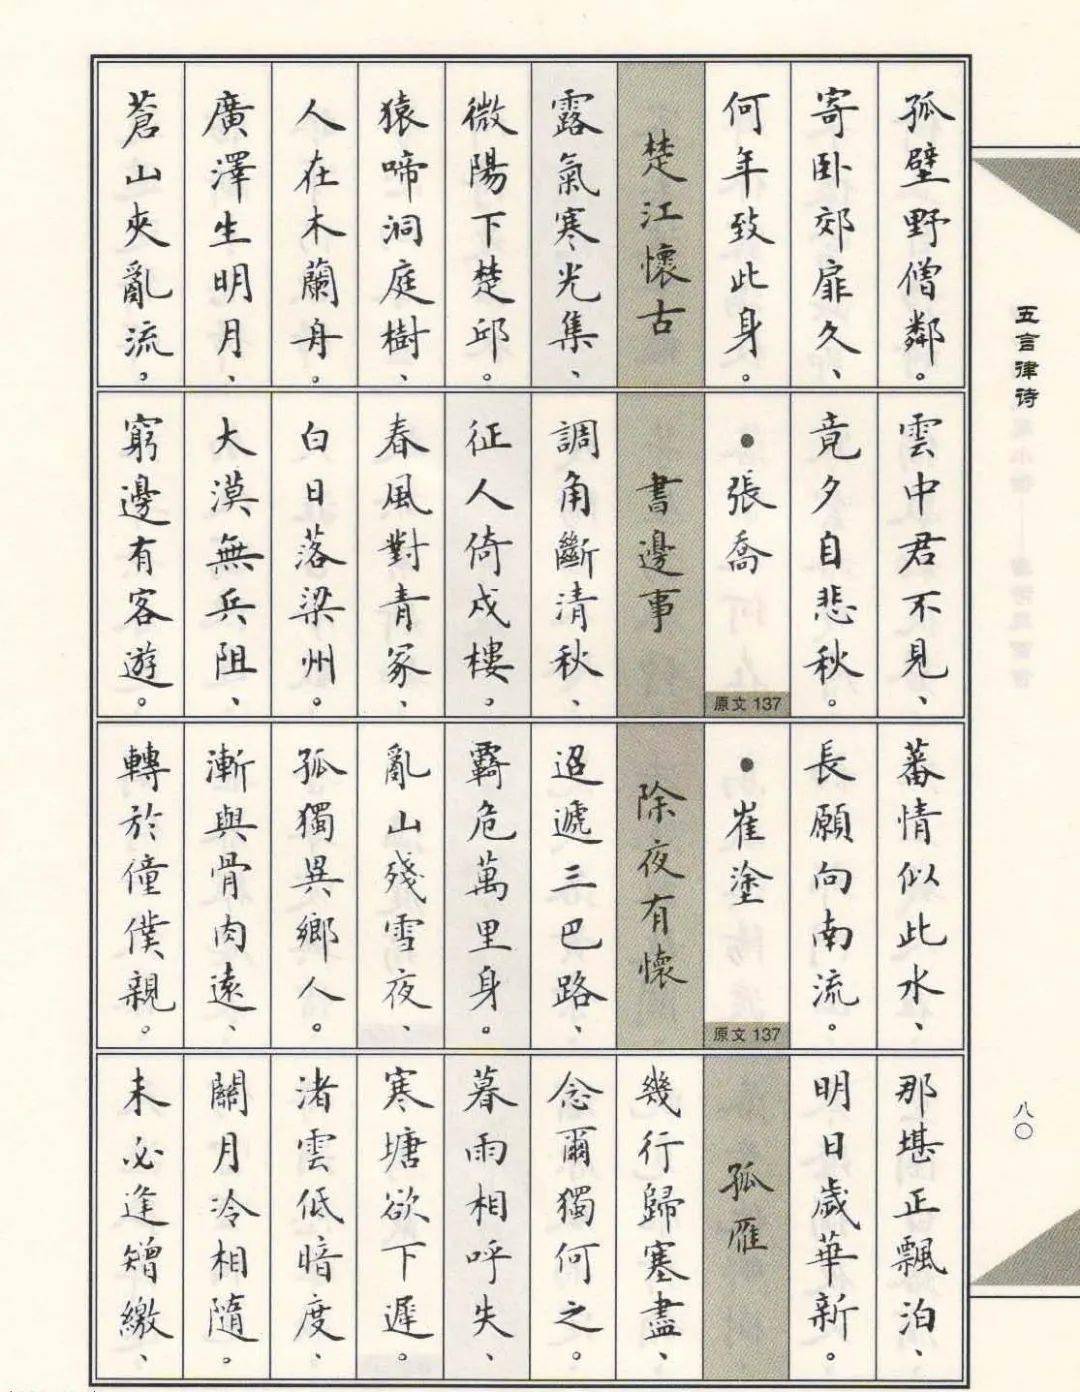 五言律诗
孤壁野僧鄰。
寄卧郊扉久、
何年致此身。
楚江懷古
露氣寒光集、
微陽下楚邱。
猿啼洞庭樹、
人在木蘭舟。
廣澤生明月、
蒼山夾亂流。
雲中君不見、
竟夕自悲秋。
●張喬
原文 137
書邊事
調角斷清秋、
征人倚戍樓。
春風對青冢、
白日落梁州。
大漠無兵阻、
窮邊有客遊。
蕃情似此水、
長願向南流。
●崔塗
原文 137
除夜有懷
迢遞三巴路、
羈危萬里身。
亂山殘雪夜、
孤獨異鄉人。
漸與骨肉遠、
轉於僮僕親。
那堪正飄泊、
明日歲華新。
孤雁
幾行歸塞盡、
念爾獨何之。
暮雨相呼失、
寒塘欲下遲。
渚雲低暗度、
關月冷相隨。
未必逢矰繳、
八〇